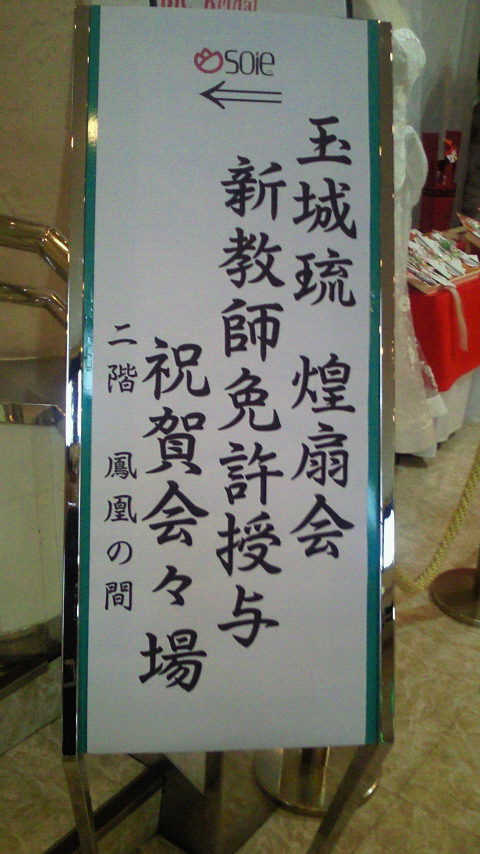 soie
玉城琉　煌扇会
新教師免許授与
祝賀会々場
二階　鳳凰の間